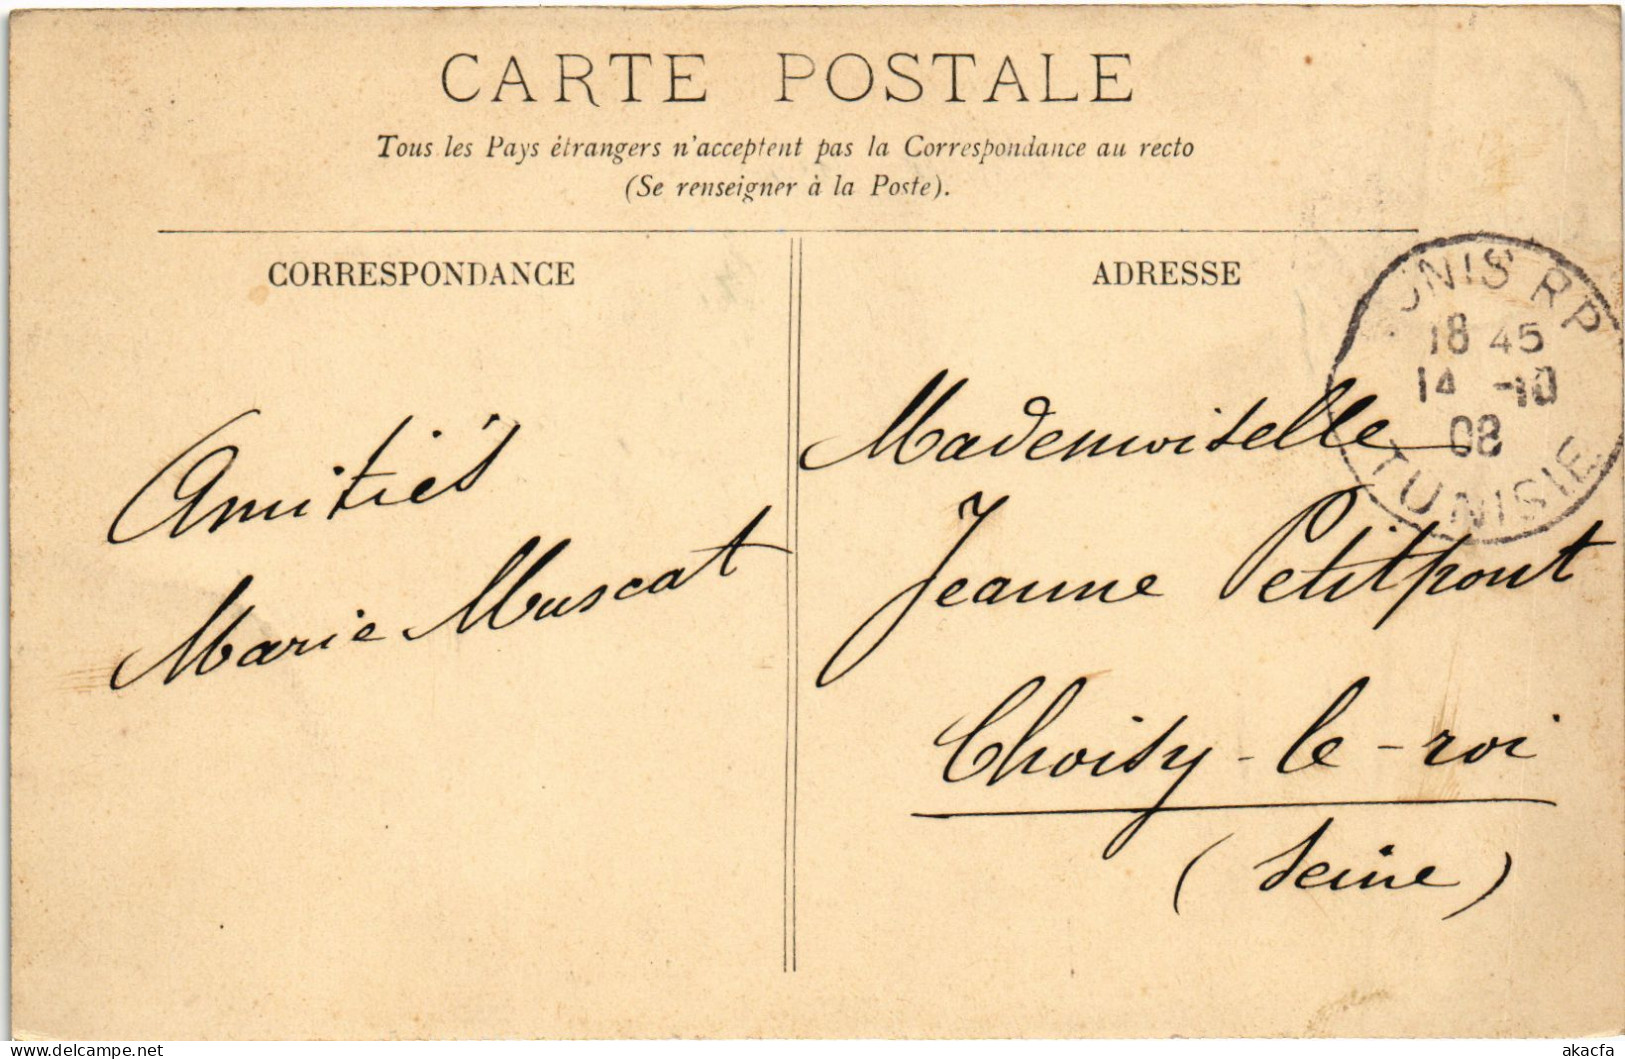 CARTE POSTALE
Tous les Pays étrangers n'acceptent pas la Correspondance au recto
(Se renseigner à la Poste).
CORRESPONDANCE
Amitiés
Marie Muscat
ADRESSE
TUNIS RP
18 45
14 -10
08
TUNISIE
Mademoiselle
Jeanne Petitpont
Choisy-le-roi
(Seine)
delcampe.net
akacfa